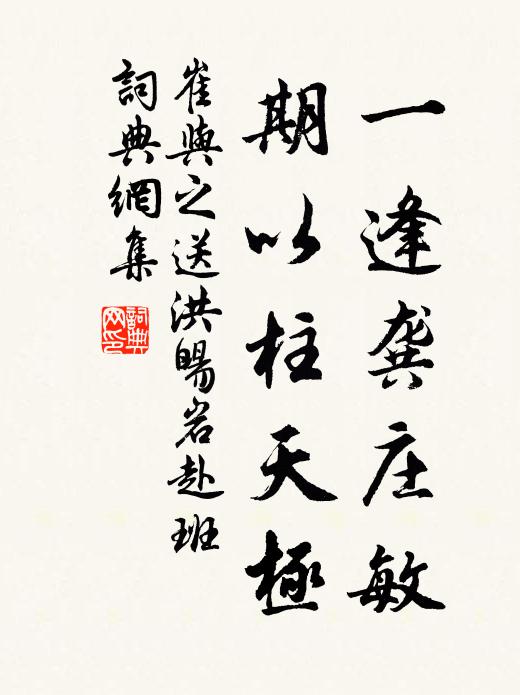 一逢龚庄敏
期以柱天極
崔與之送洪暘岩赴班
詞典網集
詞典
网印